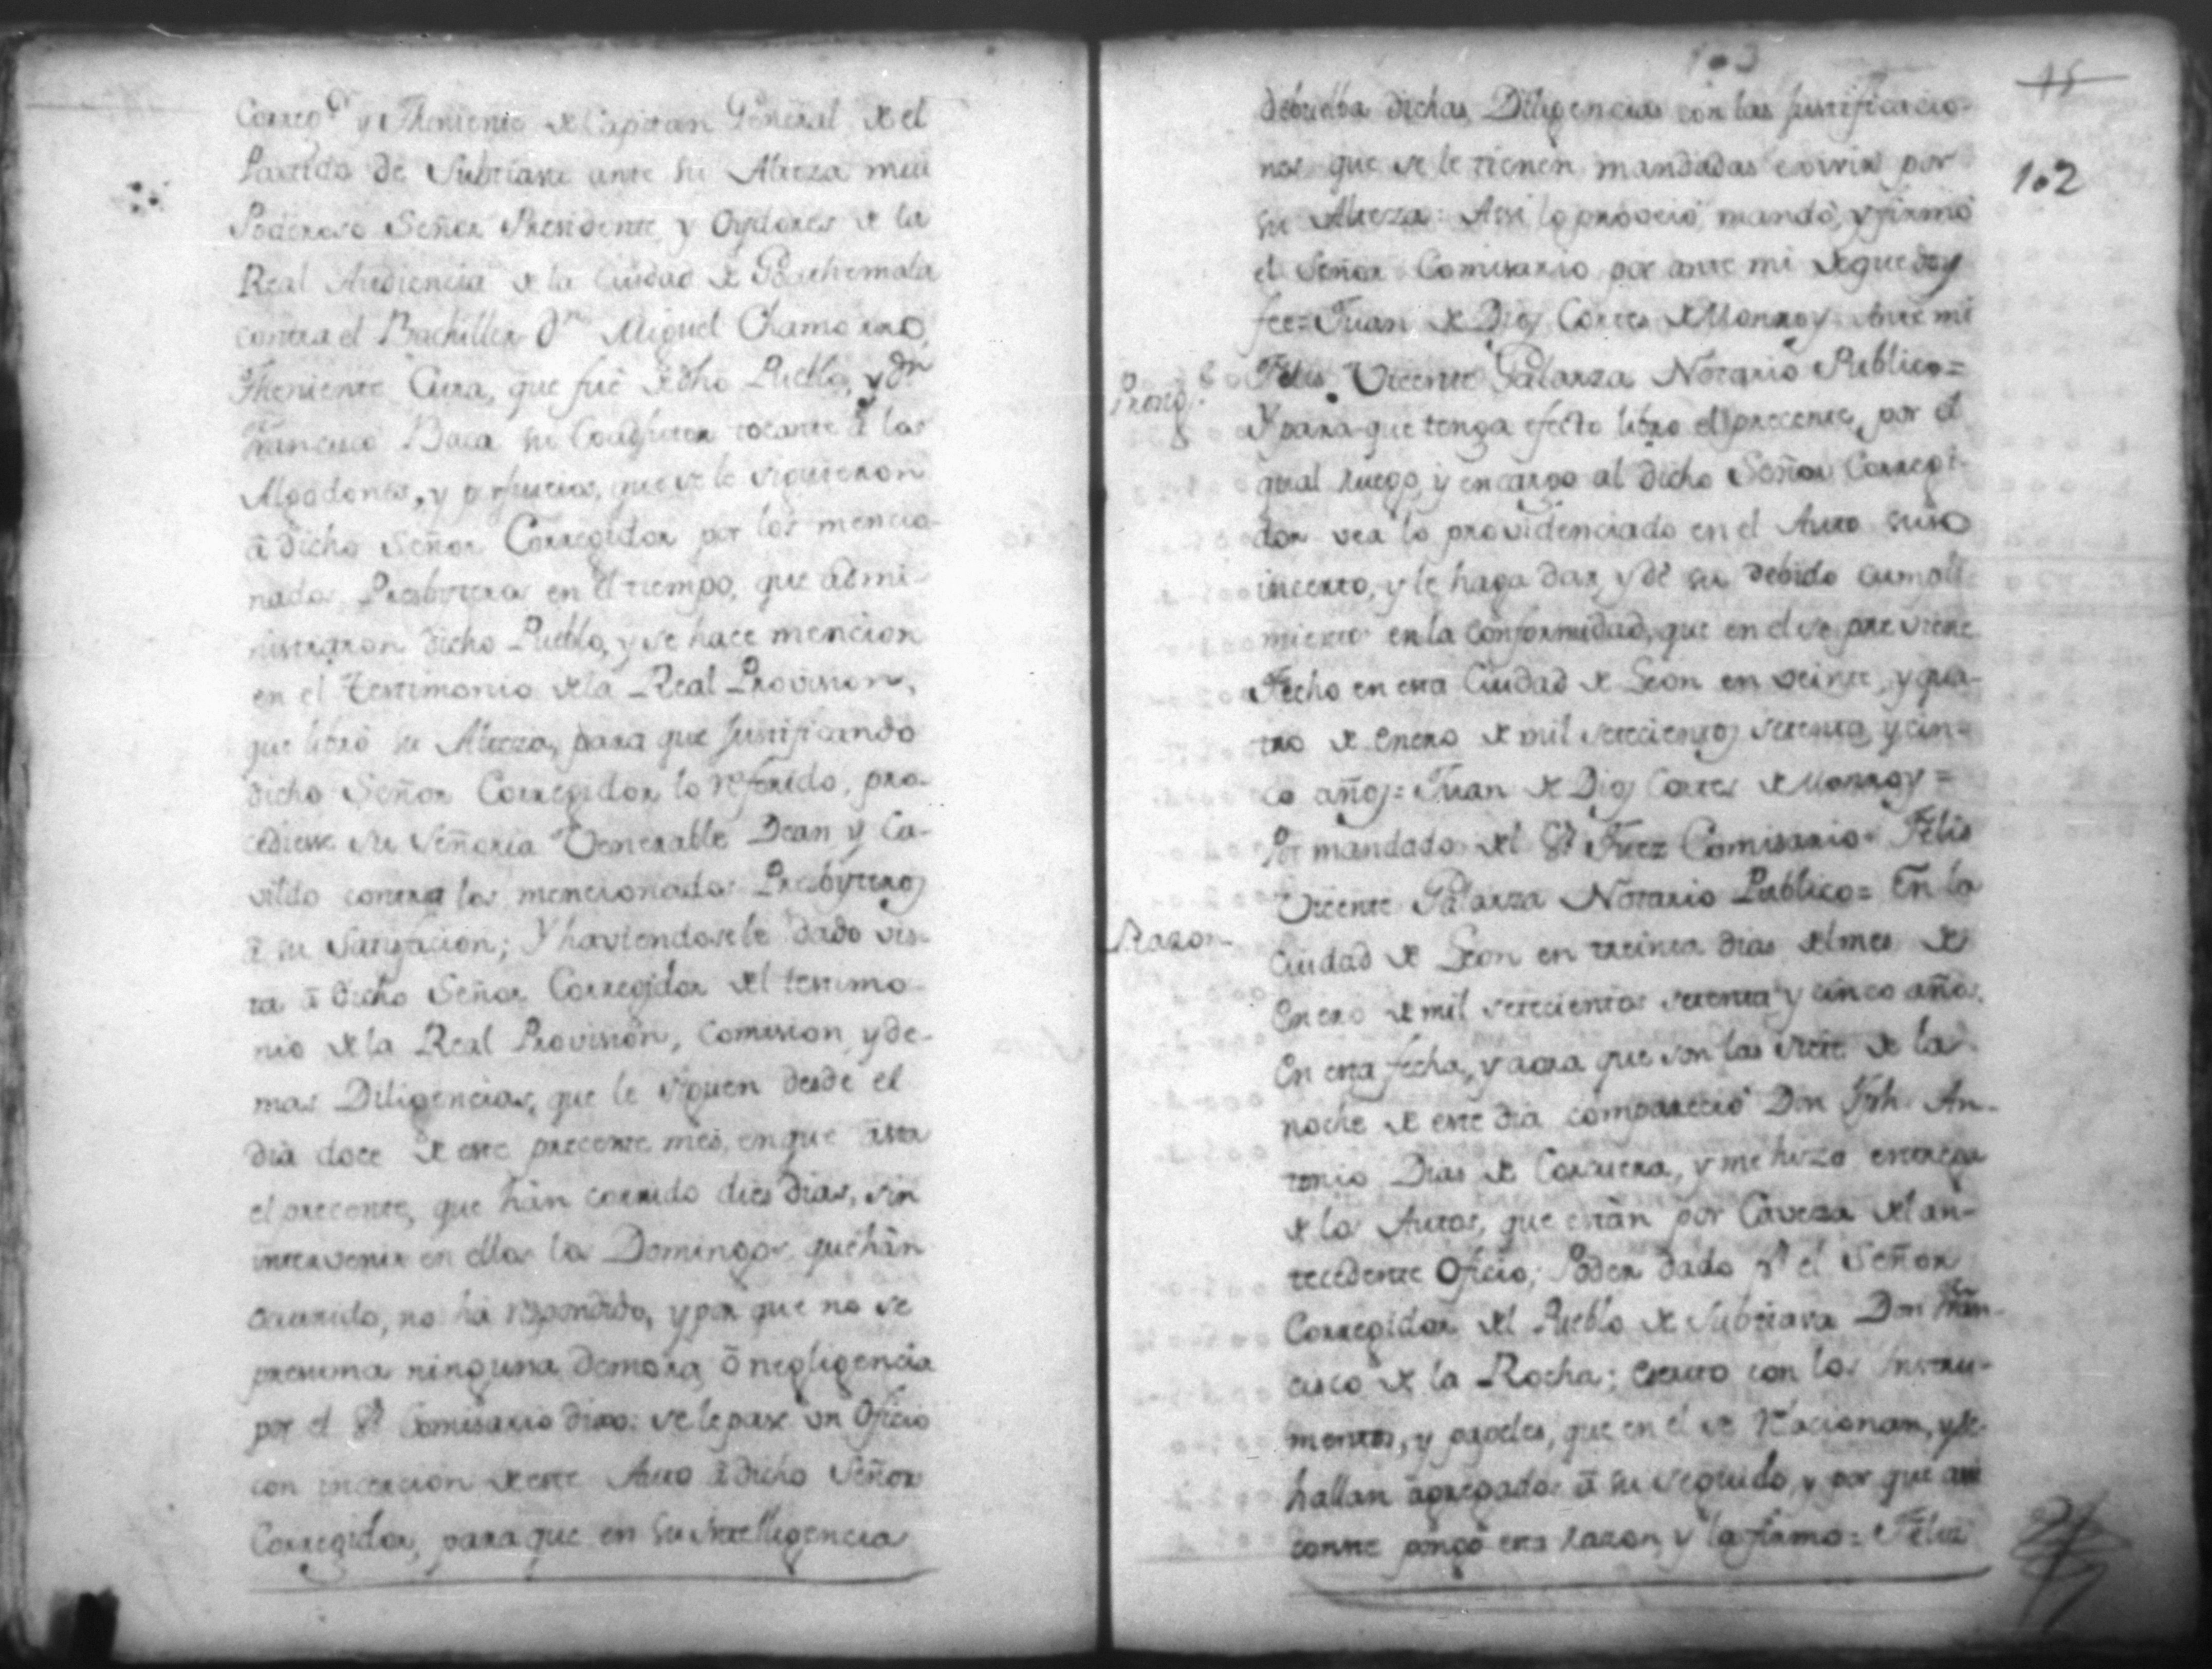 Correg.or y Theniente de Capitan General de el
Partido de Subtiava ante su Alteza mui
Poderoso Señor Presidente, y Oydores de la
Real Audiencia de la Ciudad de Goathemala
contra el Bachiller Dn Miguel Chamorro,
Theniente Cura, que fué de dho Pueblo, y dn
Francisco Baca su Coadjutor tocante â los
Algodones, y perjuicios, que se le siguieron
â dicho Señor Corregidor por los mencio-
nados Presbyteros en el tiempo, que admi-
nistraron dicho Pueblo, y se hace mencion
en el Testimonio de la Real Provision,
que libró su Alteza, para que justificando
dicho Señor Corregidor lo referido, pro-
cediesse su Señoria Venerable Dean y Ca-
vildo contra los mencionados Presbyteros
â su Satisfacion; Y haviendosele dado vis-
ta â dicho Señor Corregidor del testimo-
nio de la Real Provision, Comision, y de-
mas Diligencias, que le siguen desde el
dia doce de este precente mes, en que âsta
el precente, que hân corrido dies dias, sin
intervenir en ellos los Domingos, que hân
ocurrido, no ha respondido, y por que no se
presuma ninguna demora, ô negligencia
por el Sr Comisario dixo: se le pase un Oficio
con incercion de este Auto â dicho Señor
Corregidor, para que en su Inteligencia
103
15
102
debuelba dichas Diligencias con las justificacio-
nes que se le tienen mandadas por
su Alteza: Assi lo proveió, mandó, y firmó
el Señor Comisario por ante mi de que doy
fee= Juan de Dios Cortes de Monroy= Ante mi
Felis Vicente Galarza Notario Publico=
Prosig.
Y para que tenga efecto libro el precente, por el
qual ruego, y encargo al dicho Señor Corregi-
dor vea lo providenciado en el Auto suso
incerto, y le haga dar, y dé su debido cumpli-
miento en la conformidad, que en el se previene
Fecho en esta Ciudad de Leon en veinte, y qua-
tro de Enero de mil setecientos setenta, y cin-
co años= Juan de Dios Cortes de Monroy=
Por mandado del Sr Juez Comisario= Felis
Vicente Galarza Notario Publico= En la
Razon
Ciudad de Leon en treinta dias del mes de
Enero de mil setecientos setenta y cinco años.
En esta fecha, y aora que son las siete de la
noche de este dia comparecio Don Jph. An-
tonio Dias de Corcuera, y me hizo entrega
de los Autos, que están por Caveza del an-
tecedente Oficio; Poder dado pr el Señor
Corregidor del Pueblo de Subtiava Don Fran-
cisco de la Rocha; Escrito con los Instru-
mentos, y papeles, que en el se relacionan, y se
hallan âgregados â su seguido, y por que assi
conste pongo esta razon y la firmo= Felis